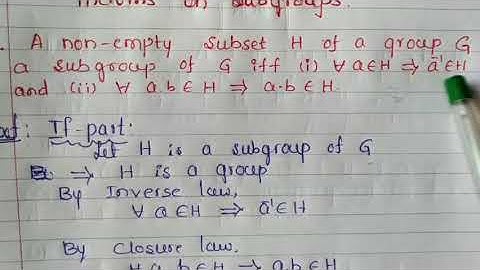 Theorems on Subgroups.
A non-empty subset H of a group G
a subgroup of G iff (i) ∀ a∈H ⇒ a⁻¹∈H
and (ii) ∀ a,b ∈ H ⇒ a·b ∈ H.
If-part:
Let H is a subgroup of G
→ H is a group
By Inverse law,
∀ a∈H ⇒ a⁻¹∈H
By Closure law.
∀ a,b ∈H ⇒ a.b ∈H